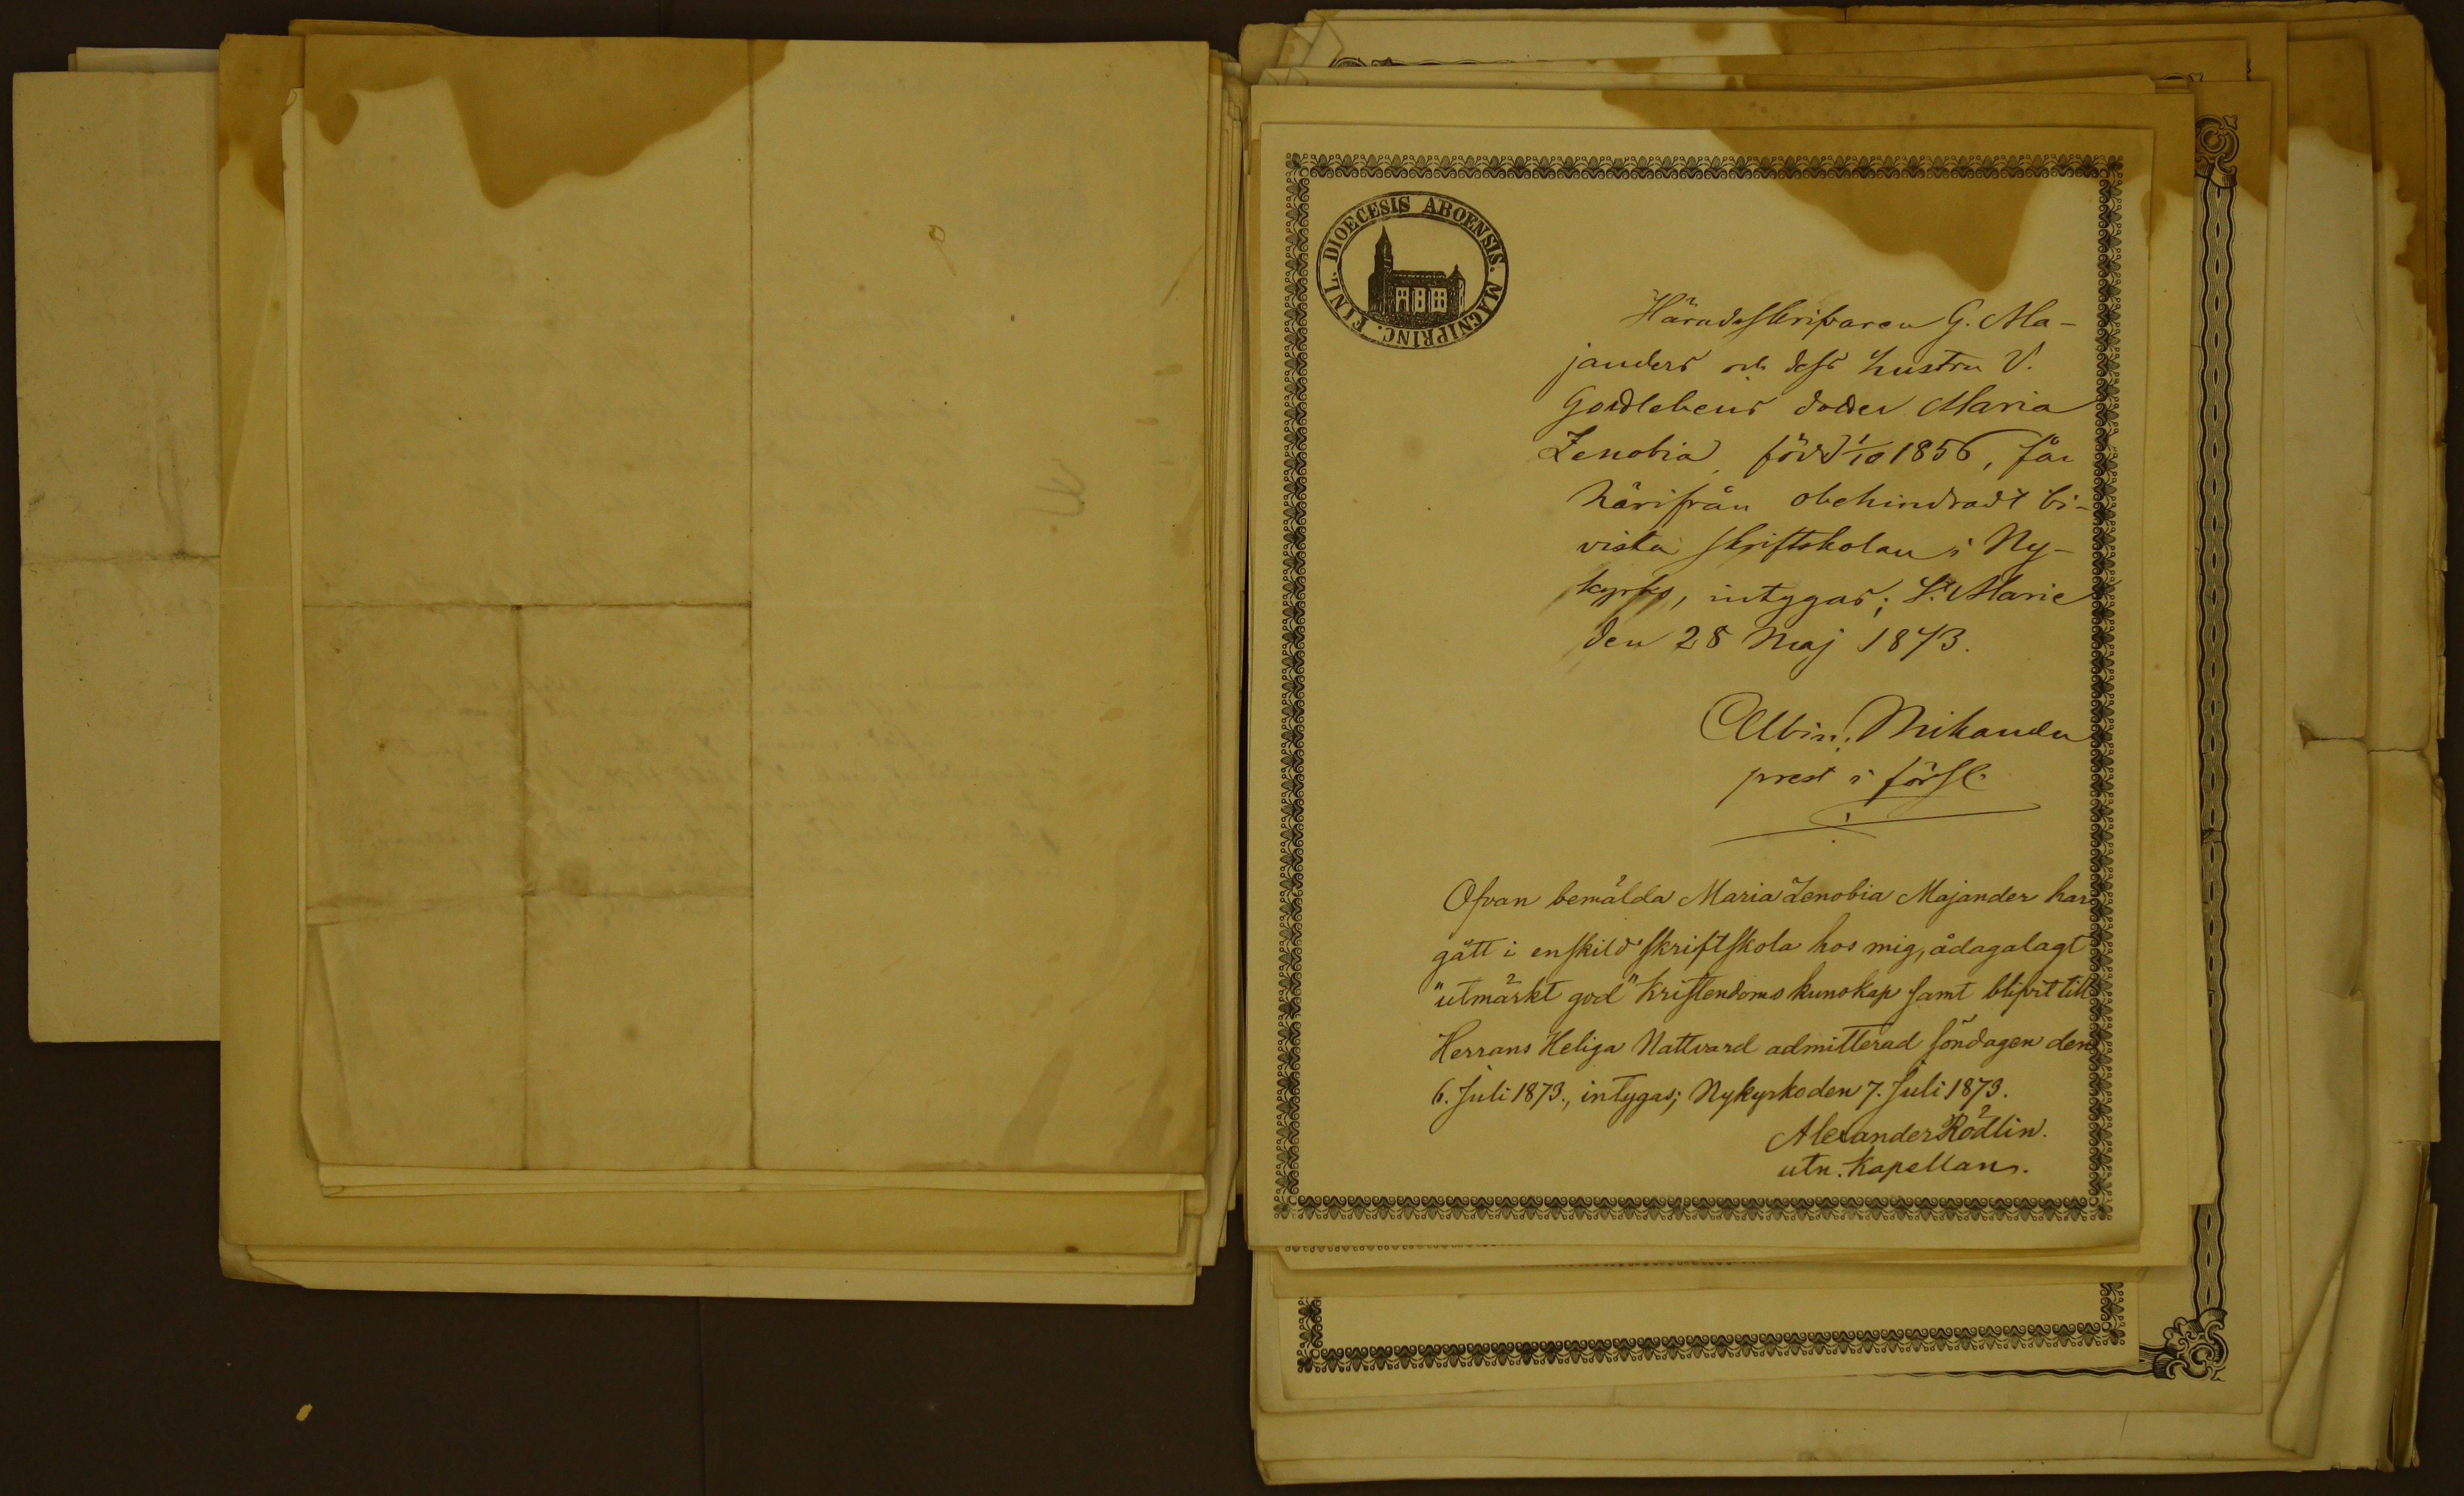 DIOECESIS ABOENSIS. MAGNIPRINC. FINL.
Häradsskrifvaren G. Ma-
janders och dess hustru V.
Gordlebens dotter Maria
Zenobia, född 1/10 1856, får
härifrån obehindradt bi-
vista skriftskolan i Ny-
kyrko, intygas; St Marie
den 28 Maj 1873.
Albin Mikander
prest i förs.
Ofvan bemälda Maria Zenobia Majander har
gått i enskild skriftskola hos mig, ådagalagt
"utmärkt god" kristendoms kunskap samt blifvit till
Herrans Heliga Nattvard admitterad söndagen den
6. Juli 1873., intygas; Nykyrko den 7. Juli 1873.
Alexander Rödlin.
utn. Kapellan.